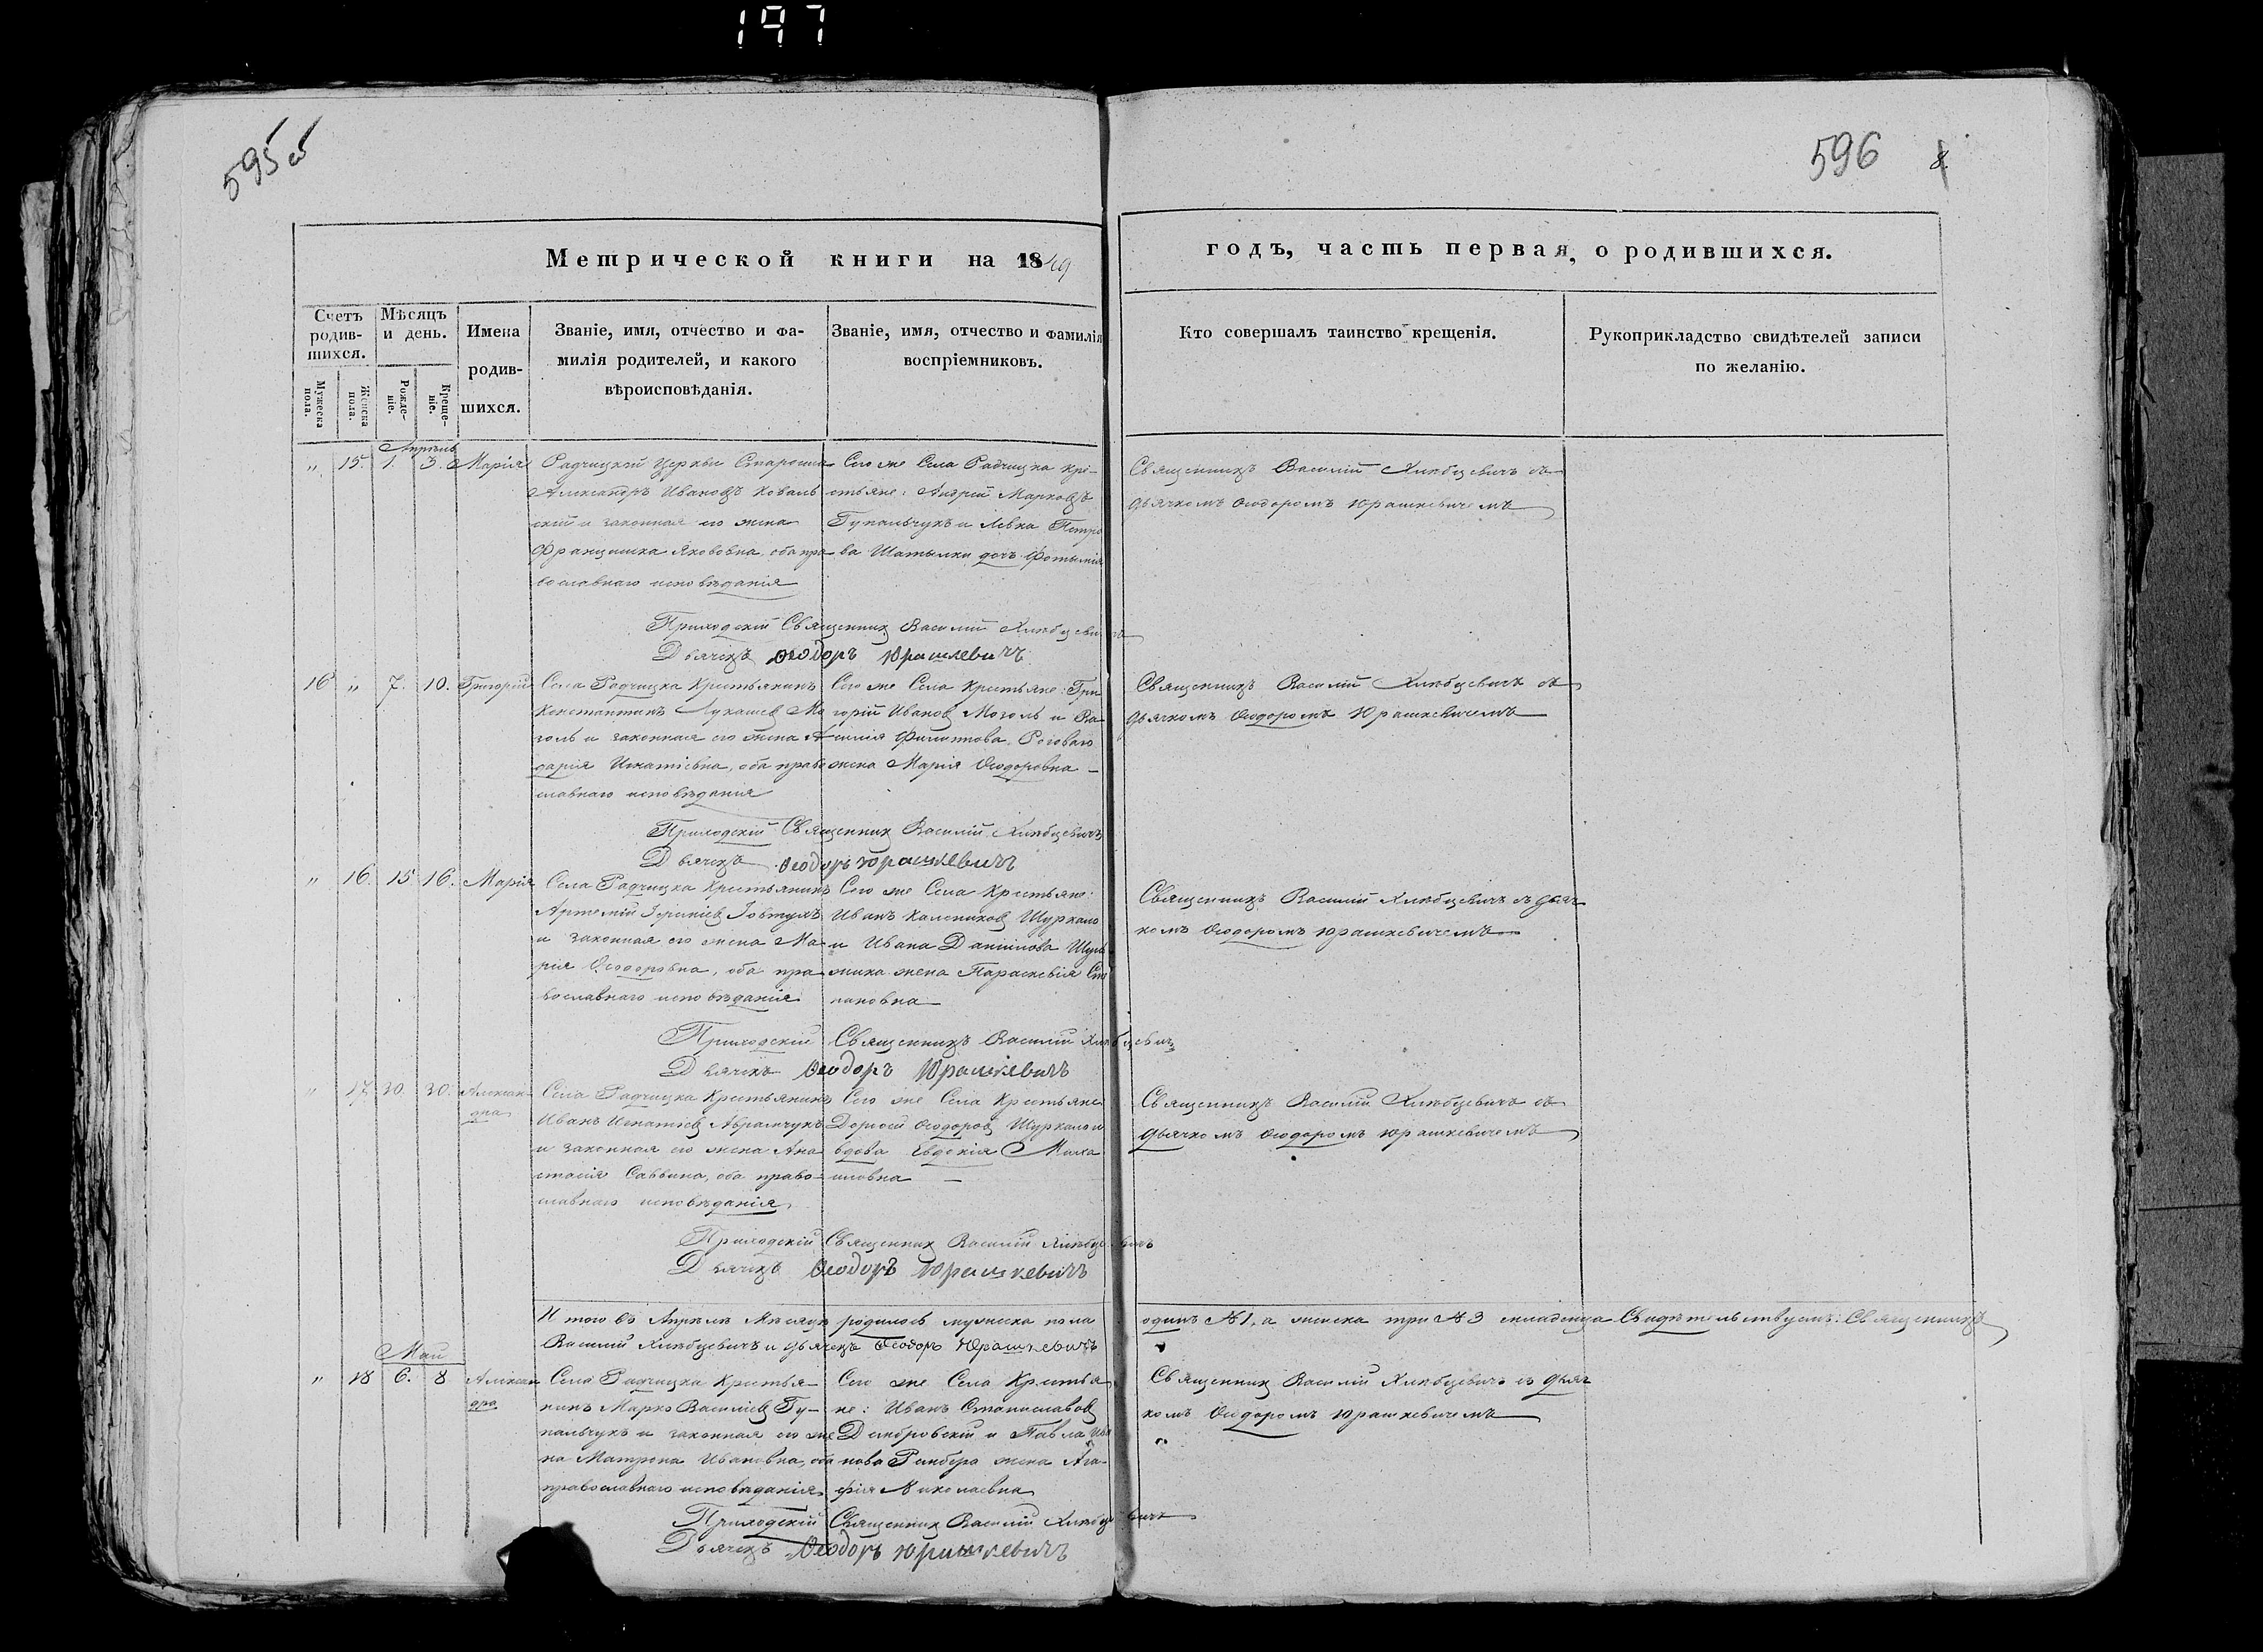 197
595об
596
8
Метрической книги на 1849
годъ, часть первая, о родившихся.
Счетъ родив-шихся.
Мѣсяцъ и день.
Имена родив-шихся.
Званіе, имя, отчество и фа-
милія родителей, и какого
вѣроисповѣданія.
Званіе, имя, отчество и фамилія
воспріемниковъ.
Кто совершалъ таинство крещенія.
Рукоприкладство свидѣтелей записи
по желанію.
Мужеска пола.
Женска пола.
Рожде-ніе.
Креще-ніе.
Апрѣль
" 15. 1. 3. Марія
Радчицкой Церкви Староста
Александръ Ивановъ Коваль
скій и законная его жена
Францишка Якововна, оба пра
вославнаго исповѣданія
Того же Села Радчицка кре-
стьяне: Андрей Марковъ
Гупальчукъ и Левка Петро
ва Шатылки дочь Фотинія
Священникъ Василій Хлѣбцевичъ съ
дьячкомъ Ѳеодоромъ Юрашкевичемъ
Приходскій Священникъ Василій Хлѣбцевичъ
Дьячекъ Ѳеодоръ Юрашкевичъ
16 " 7. 10. Григорій
Села Радчицка Крестьянинъ
Константинъ Лукашев Мо
голь и законная его жена
Дарія Игнатіевна, оба право
славнаго исповѣданія
Того же Села Крестьяне: Гри
горій Иванов Моголь и Ва
силія Филиппова Роговаго
жена Марія Ѳеодоровна
Священникъ Василій Хлѣбцевичъ съ
дьячкомъ Ѳеодоромъ Юрашкевичемъ
Приходскій Священник Василій Хлѣбцевичъ
Дьячекъ Ѳеодоръ Юрашкевичъ
" 16. 15 16. Марія
Села Радчицка Крестьянинъ
Артемій
и законная его жена Ма
рія Ѳеодоровна, оба пра
вославнаго исповѣданія
Того же Села Крестьяне:
Иванъ Калеников Шуркало
и Ивана Даниилова
жена Параскевія Сте
пановна
Священникъ Василій Хлѣбцевичъ съ дьяч
комъ Ѳеодоромъ Юрашкевичемъ
Приходскій Священникъ Василій Хлѣбцевичъ
Дьячекъ Ѳеодоръ Юрашкевичъ
" 17. 30. 30. Алексан-
дра
Села Радчицка Крестьянинъ
Иванъ Игнатіев Абрамчукъ
и законная его жена Ана
стасія Саввина, оба право-
славнаго исповѣданія
Того же Села Крестьяне
Ѳеодоров Шуркало и
вдова Евдокія Миха
иловна
Священникъ Василій Хлѣбцевичъ съ
дьячкомъ Ѳеодоромъ Юрашкевичемъ
Приходскій Священник Василій Хлѣбцевичъ
Дьячекъ Ѳеодоръ Юрашкевичъ
И того въ Апрѣлѣ Мѣсяцѣ родилось мужеска пола одинъ №1, а женска три №3 младенца Свидѣтельствуемъ: Священникъ
Василій Хлѣбцевичъ и дьячекъ Ѳеодоръ Юрашкевичъ
Май
" 18 6. 8 Алексан
дра
Села Радчицка Крестья-
нинъ Марко Василіев Гу-
пальчукъ и законная его же
на Матрона Ивановна, оба
православнаго исповѣданія
Того же Села Крестья
не: Иванъ Станиславов
Домбровскій и Павла Ива
нова жена Ага-
фія Николаевна
Священник Василій Хлѣбцевичъ съ дьяч
комъ Ѳеодоромъ Юрашкевичемъ
Приходскій Священник Василій Хлѣбцевичъ
Дьячекъ Ѳеодоръ Юрашкевичъ